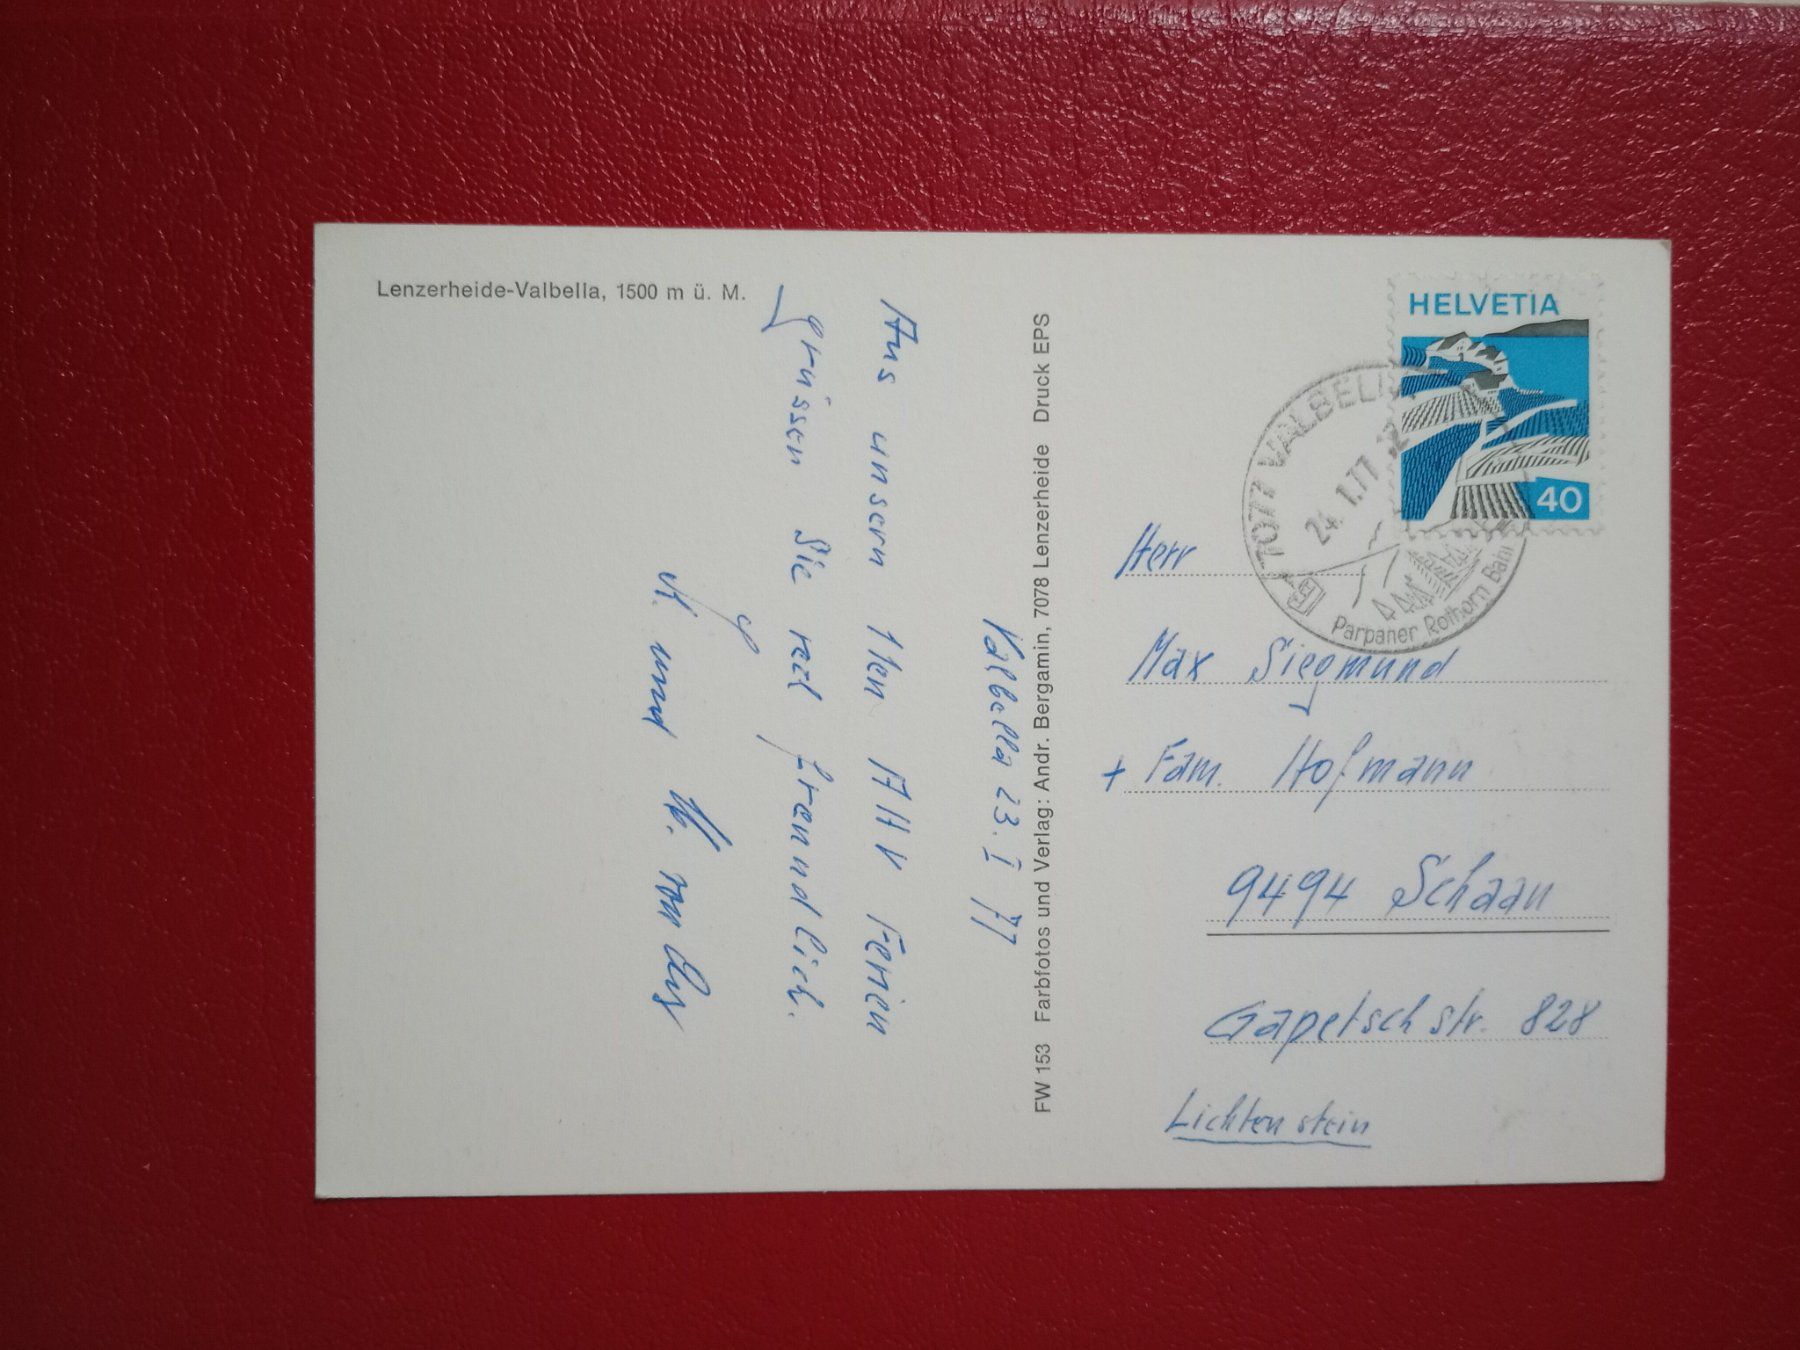 Lenzerheide-Valbella, 1500 m ü. M.
Valbella 23. I 77
Aus unsern 1ten AHV Ferien
grüssen Sie recht freundlich.
und
FW 153 Farbfotos und Verlag: Andr. Bergamin, 7078 Lenzerheide Druck EPS
HELVETIA
40
7077 VALBELLA
24. 1. 77. 12
Parpaner Rothorn Bahn
Herr
Max Siegmund
+ Fam. Hofmann
9494 Schaan
Gapetschstr. 828
Lichtenstein